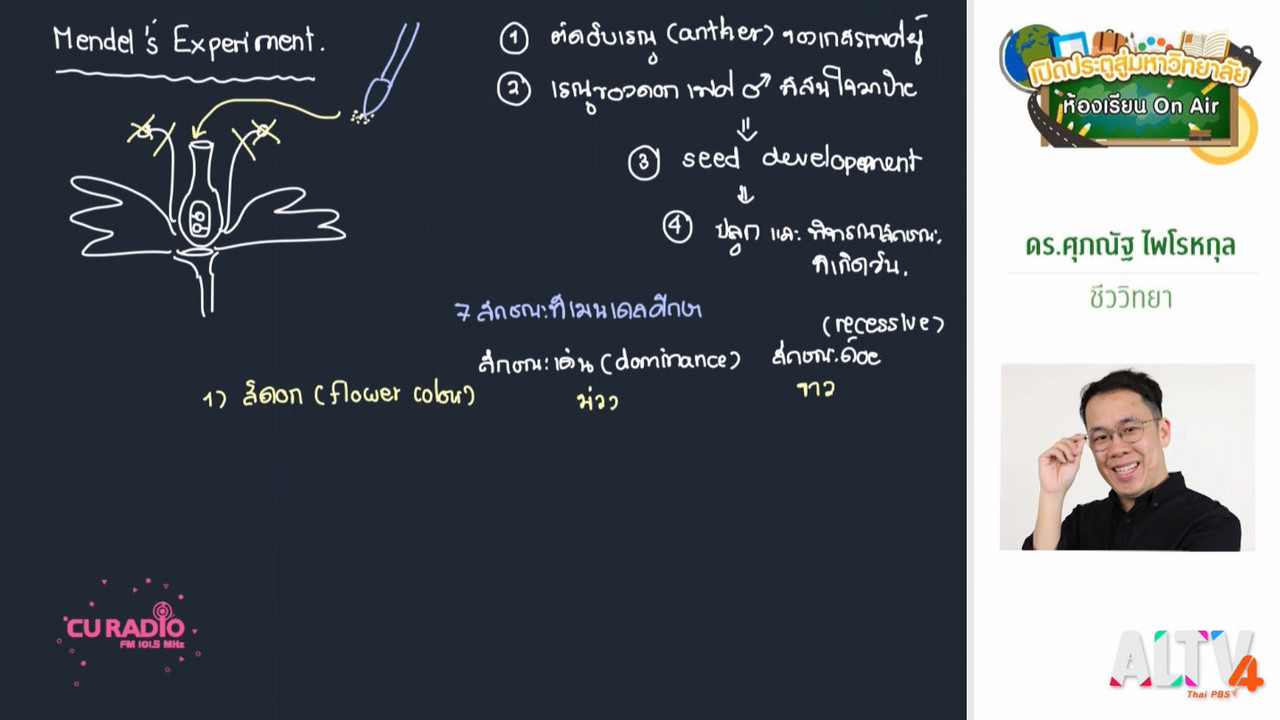 Mendel's Experiment.
① ตัดอับเรณู (anther) ของเกสรเพศผู้
② เรณูของดอกเพศ ♂ ที่สนใจมาป้าย
⇓
③ seed development
⇓
④ ปลูก และ พิจารณาลักษณะ
ที่เกิดขึ้น.
7 ลักษณะที่เมนเดลศึกษา
(recessive)
ลักษณะเด่น (dominance) ลักษณะด้อย
1) สีดอก (flower colour) ม่วง ขาว
เปิดประตูสู่มหาวิทยาลัย
ห้องเรียน On Air
ดร.ศุภณัฐ ไพโรหกุล
ชีววิทยา
CU RADIO
FM 101.5 MHz
ALTV 4
Thai PBS